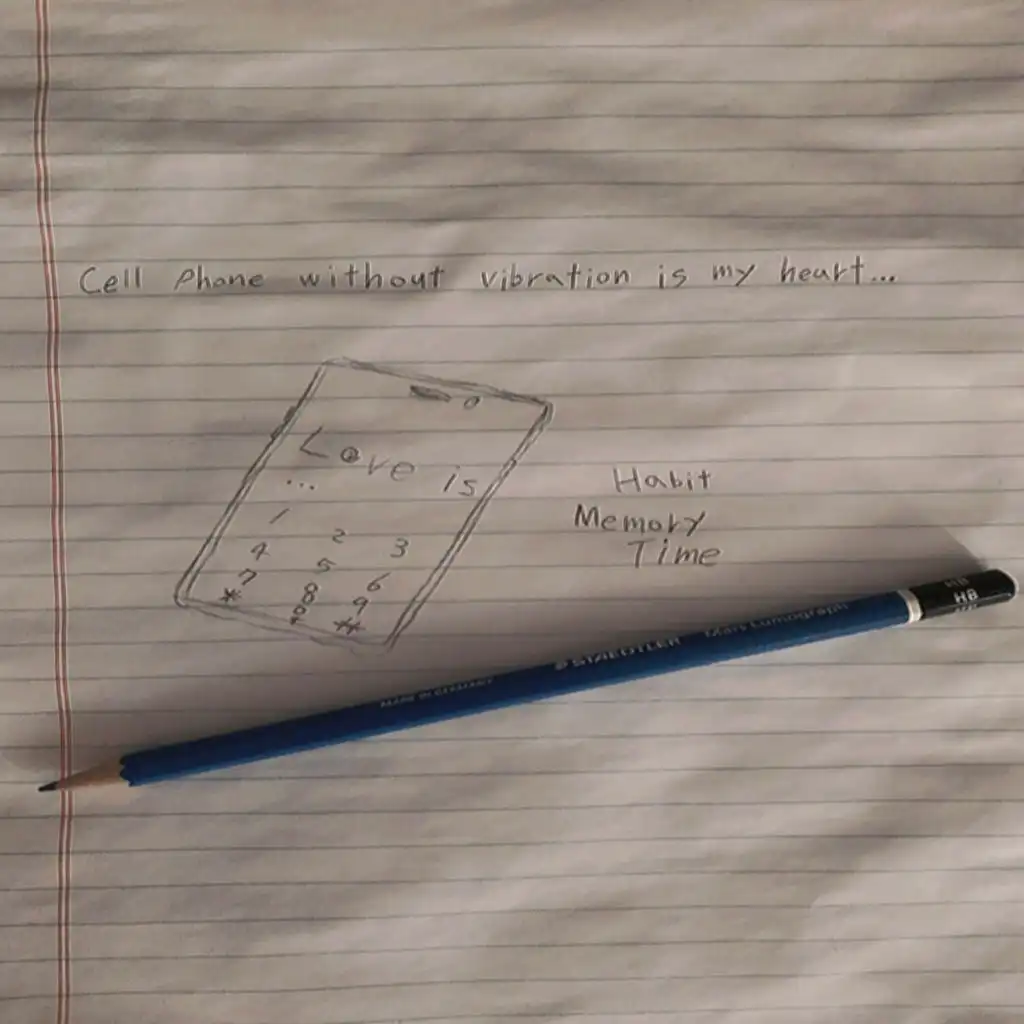 Cell Phone without vibration is my heart...
Love is
...
1 2 3
4 5 6
7 8 9
* #
Habit
Memory
Time
MADE IN GERMANY STAEDTLER Mars Lumograph HB
HB